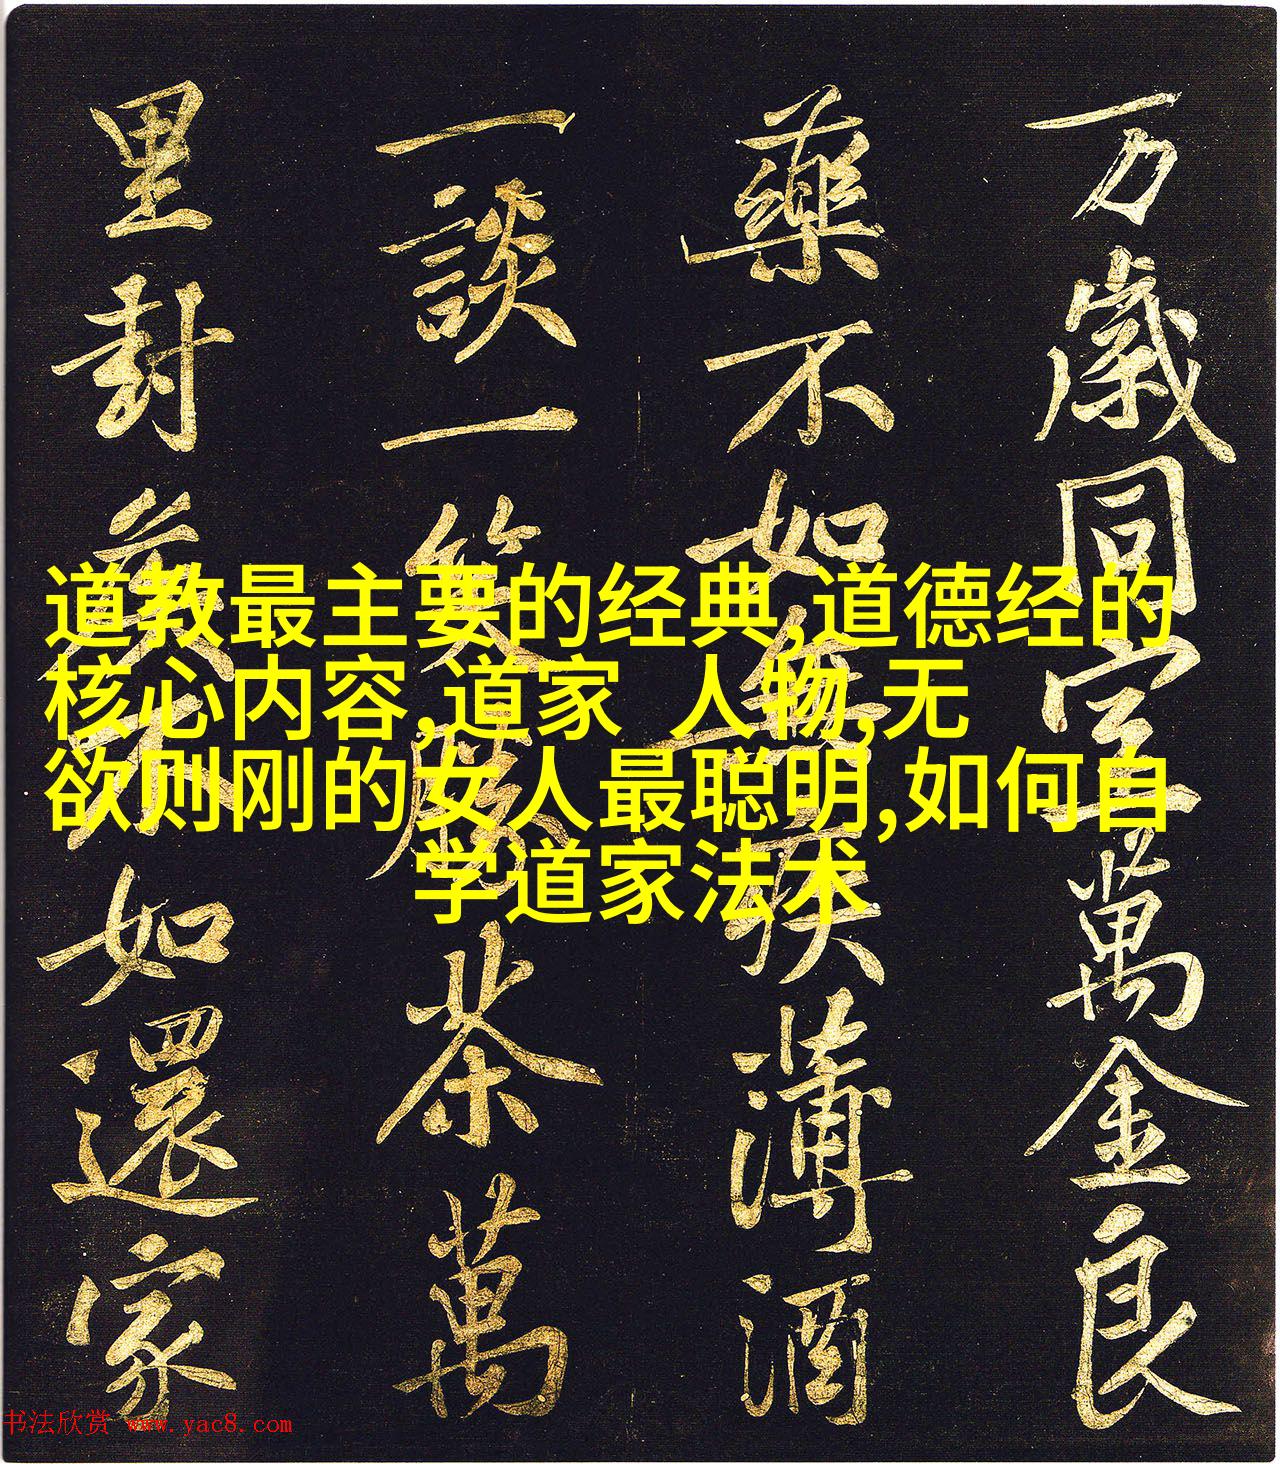 万歲同萬金良
藥不如無疾薄酒
一談一笑勝茶萬
里封矦不如還家
道教最主要的经典,道德经的
核心内容,道家 人物,无
欲则刚的女人最聪明,如何自
学道家法术
书法欣赏 www.yac8.com